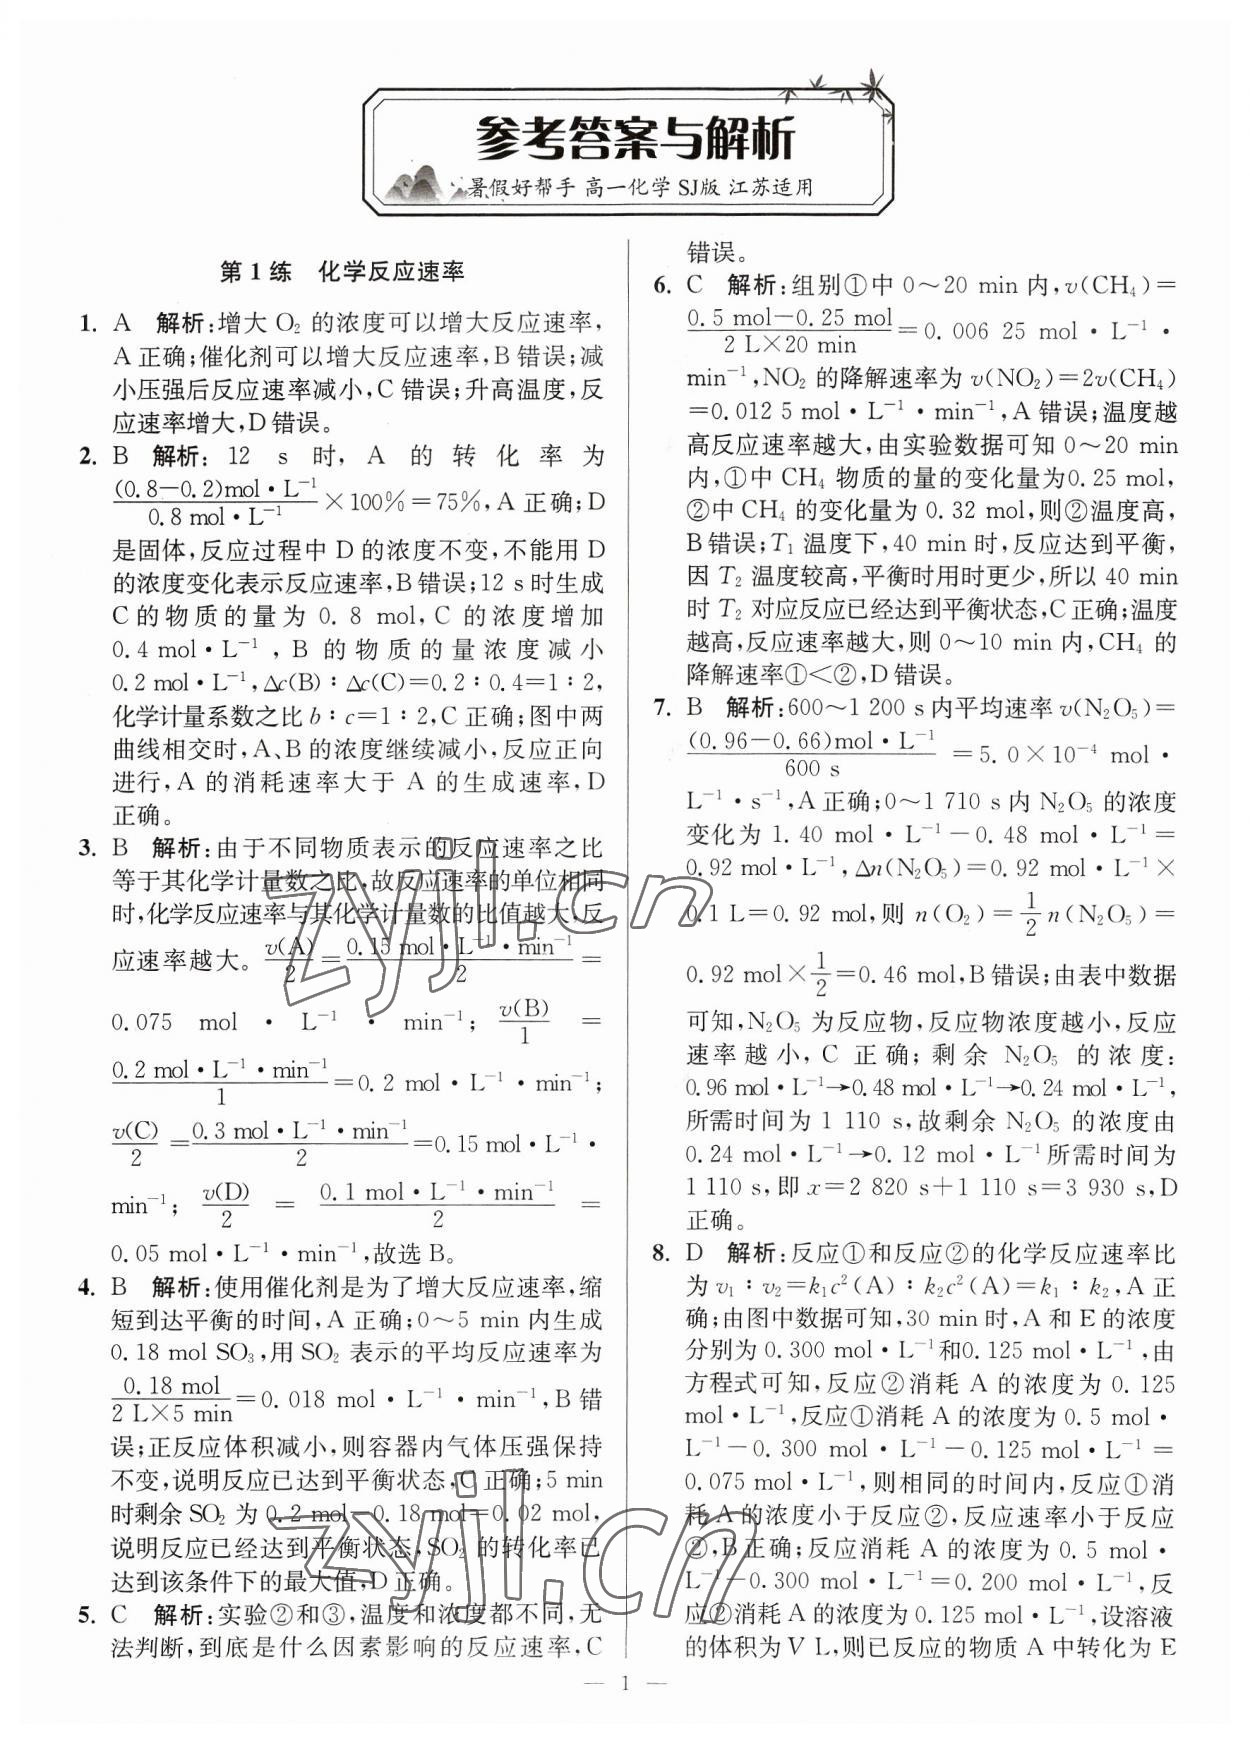 参考答案与解析
暑假好帮手 高一化学 SJ版 江苏适用
第1练 化学反应速率
1. A 解析:增大 O₂ 的浓度可以增大反应速率,
A 正确;催化剂可以增大反应速率,B 错误;减
小压强后反应速率减小,C 错误;升高温度,反
应速率增大,D 错误。
2. B 解析: 12 s 时, A 的转化率为
(0.8−0.2)mol·L⁻¹/0.8 mol·L⁻¹ ×100%=75%,A 正确;D
是固体,反应过程中 D 的浓度不变,不能用 D
的浓度变化表示反应速率,B 错误;12 s 时生成
C 的物质的量为 0.8 mol,C 的浓度增加
0.4 mol·L⁻¹,B 的物质的量浓度减小
0.2 mol·L⁻¹,Δc(B)∶Δc(C)=0.2∶0.4=1∶2,
化学计量系数之比 b∶c=1∶2,C 正确;图中两
曲线相交时,A、B 的浓度继续减小,反应正向
进行,A 的消耗速率大于 A 的生成速率,D
正确。
3. B 解析:由于不同物质表示的反应速率之比
等于其化学计量数之比,故反应速率的单位相同
时,化学反应速率与其化学计量数的比值越大,反
应速率越大。v(A)/2=0.15 mol·L⁻¹·min⁻¹/2=
0.075 mol·L⁻¹·min⁻¹; v(B)/1 =
0.2 mol·L⁻¹·min⁻¹/1=0.2 mol·L⁻¹·min⁻¹;
v(C)/2=0.3 mol·L⁻¹·min⁻¹/2=0.15 mol·L⁻¹·
min⁻¹; v(D)/2 = 0.1 mol·L⁻¹·min⁻¹/2 =
0.05 mol·L⁻¹·min⁻¹,故选 B。
4. B 解析:使用催化剂是为了增大反应速率,缩
短到达平衡的时间,A 正确;0~5 min 内生成
0.18 mol SO₃,用 SO₂ 表示的平均反应速率为
0.18 mol/2 L×5 min=0.018 mol·L⁻¹·min⁻¹,B 错
误;正反应体积减小,则容器内气体压强保持
不变,说明反应已达到平衡状态,C 正确;5 min
时剩余 SO₂ 为 0.2 mol−0.18 mol=0.02 mol,
说明反应已经达到平衡状态,SO₂ 的转化率已
达到该条件下的最大值,D 正确。
5. C 解析:实验②和③,温度和浓度都不同,无
法判断,到底是什么因素影响的反应速率,C
错误。
6. C 解析:组别①中 0~20 min 内,v(CH₄)=
0.5 mol−0.25 mol/2 L×20 min=0.006 25 mol·L⁻¹·
min⁻¹,NO₂ 的降解速率为 v(NO₂)=2v(CH₄)
=0.012 5 mol·L⁻¹·min⁻¹,A 错误;温度越
高反应速率越大,由实验数据可知 0~20 min
内,①中 CH₄ 物质的量的变化量为0.25 mol,
②中 CH₄ 的变化量为 0.32 mol,则②温度高,
B 错误;T₁ 温度下,40 min 时,反应达到平衡,
因 T₂ 温度较高,平衡时用时更少,所以 40 min
时 T₂ 对应反应已经达到平衡状态,C 正确;温度
越高,反应速率越大,则 0~10 min 内,CH₄ 的
降解速率①<②,D 错误。
7. B 解析:600~1 200 s 内平均速率 v(N₂O₅)=
(0.96−0.66)mol·L⁻¹/600 s =5.0×10⁻⁴ mol·
L⁻¹·s⁻¹,A 正确;0~1 710 s 内 N₂O₅ 的浓度
变化为 1.40 mol·L⁻¹−0.48 mol·L⁻¹=
0.92 mol·L⁻¹,Δn(N₂O₅)=0.92 mol·L⁻¹×
0.1 L=0.92 mol,则 n(O₂)=1/2 n(N₂O₅)=
0.92 mol×1/2=0.46 mol,B 错误;由表中数据
可知,N₂O₅ 为反应物,反应物浓度越小,反应
速率越小,C 正确;剩余 N₂O₅ 的浓度:
0.96 mol·L⁻¹→0.48 mol·L⁻¹→0.24 mol·L⁻¹,
所需时间为 1 110 s,故剩余 N₂O₅ 的浓度由
0.24 mol·L⁻¹→0.12 mol·L⁻¹所需时间为
1 110 s,即 x=2 820 s+1 110 s=3 930 s,D
正确。
8. D 解析:反应①和反应②的化学反应速率比
为 v₁∶v₂=k₁c²(A)∶k₂c²(A)=k₁∶k₂,A 正
确;由图中数据可知,30 min 时,A 和 E 的浓度
分别为 0.300 mol·L⁻¹和0.125 mol·L⁻¹,由
方程式可知,反应②消耗 A 的浓度为 0.125
mol·L⁻¹,反应①消耗 A 的浓度为 0.5 mol·
L⁻¹−0.300 mol·L⁻¹−0.125 mol·L⁻¹=
0.075 mol·L⁻¹,则相同的时间内,反应①消
耗 A 的浓度小于反应②,反应速率小于反应
②,B 正确;反应消耗 A 的浓度为 0.5 mol·
L⁻¹−0.300 mol·L⁻¹=0.200 mol·L⁻¹,反
应②消耗 A 的浓度为 0.125 mol·L⁻¹,设溶液
的体积为 V L,则已反应的物质 A 中转化为 E
— 1 —
zyjl.cn
zyjl.cn